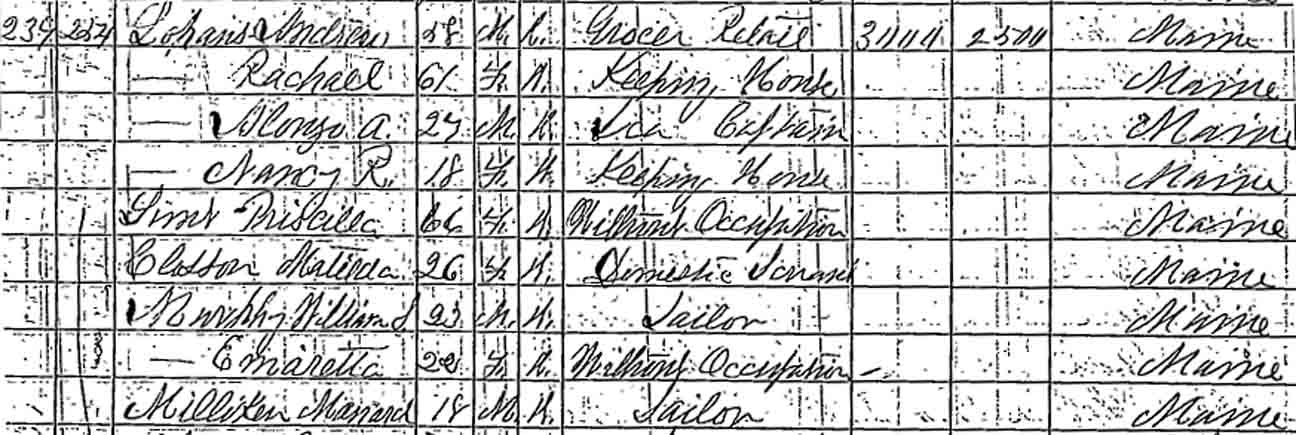 239 Andrew 58 M. W. Grocer Retail 2500 Maine
— Rachael 61 F. W. Keeping House Maine
— Alonzo A. 27 M. W. Sea Captain Maine
— Nancy R. 18 F. W. Keeping House Maine
Priscilla 66 F. W. Without Occupation Maine
Closson Matilda 26 F. W. Domestic Servant Maine
Murphy William S. 23 M. W. Sailor Maine
— Emaretta F. W. Without Occupation — Maine
Milliken 18 M. W. Sailor Maine